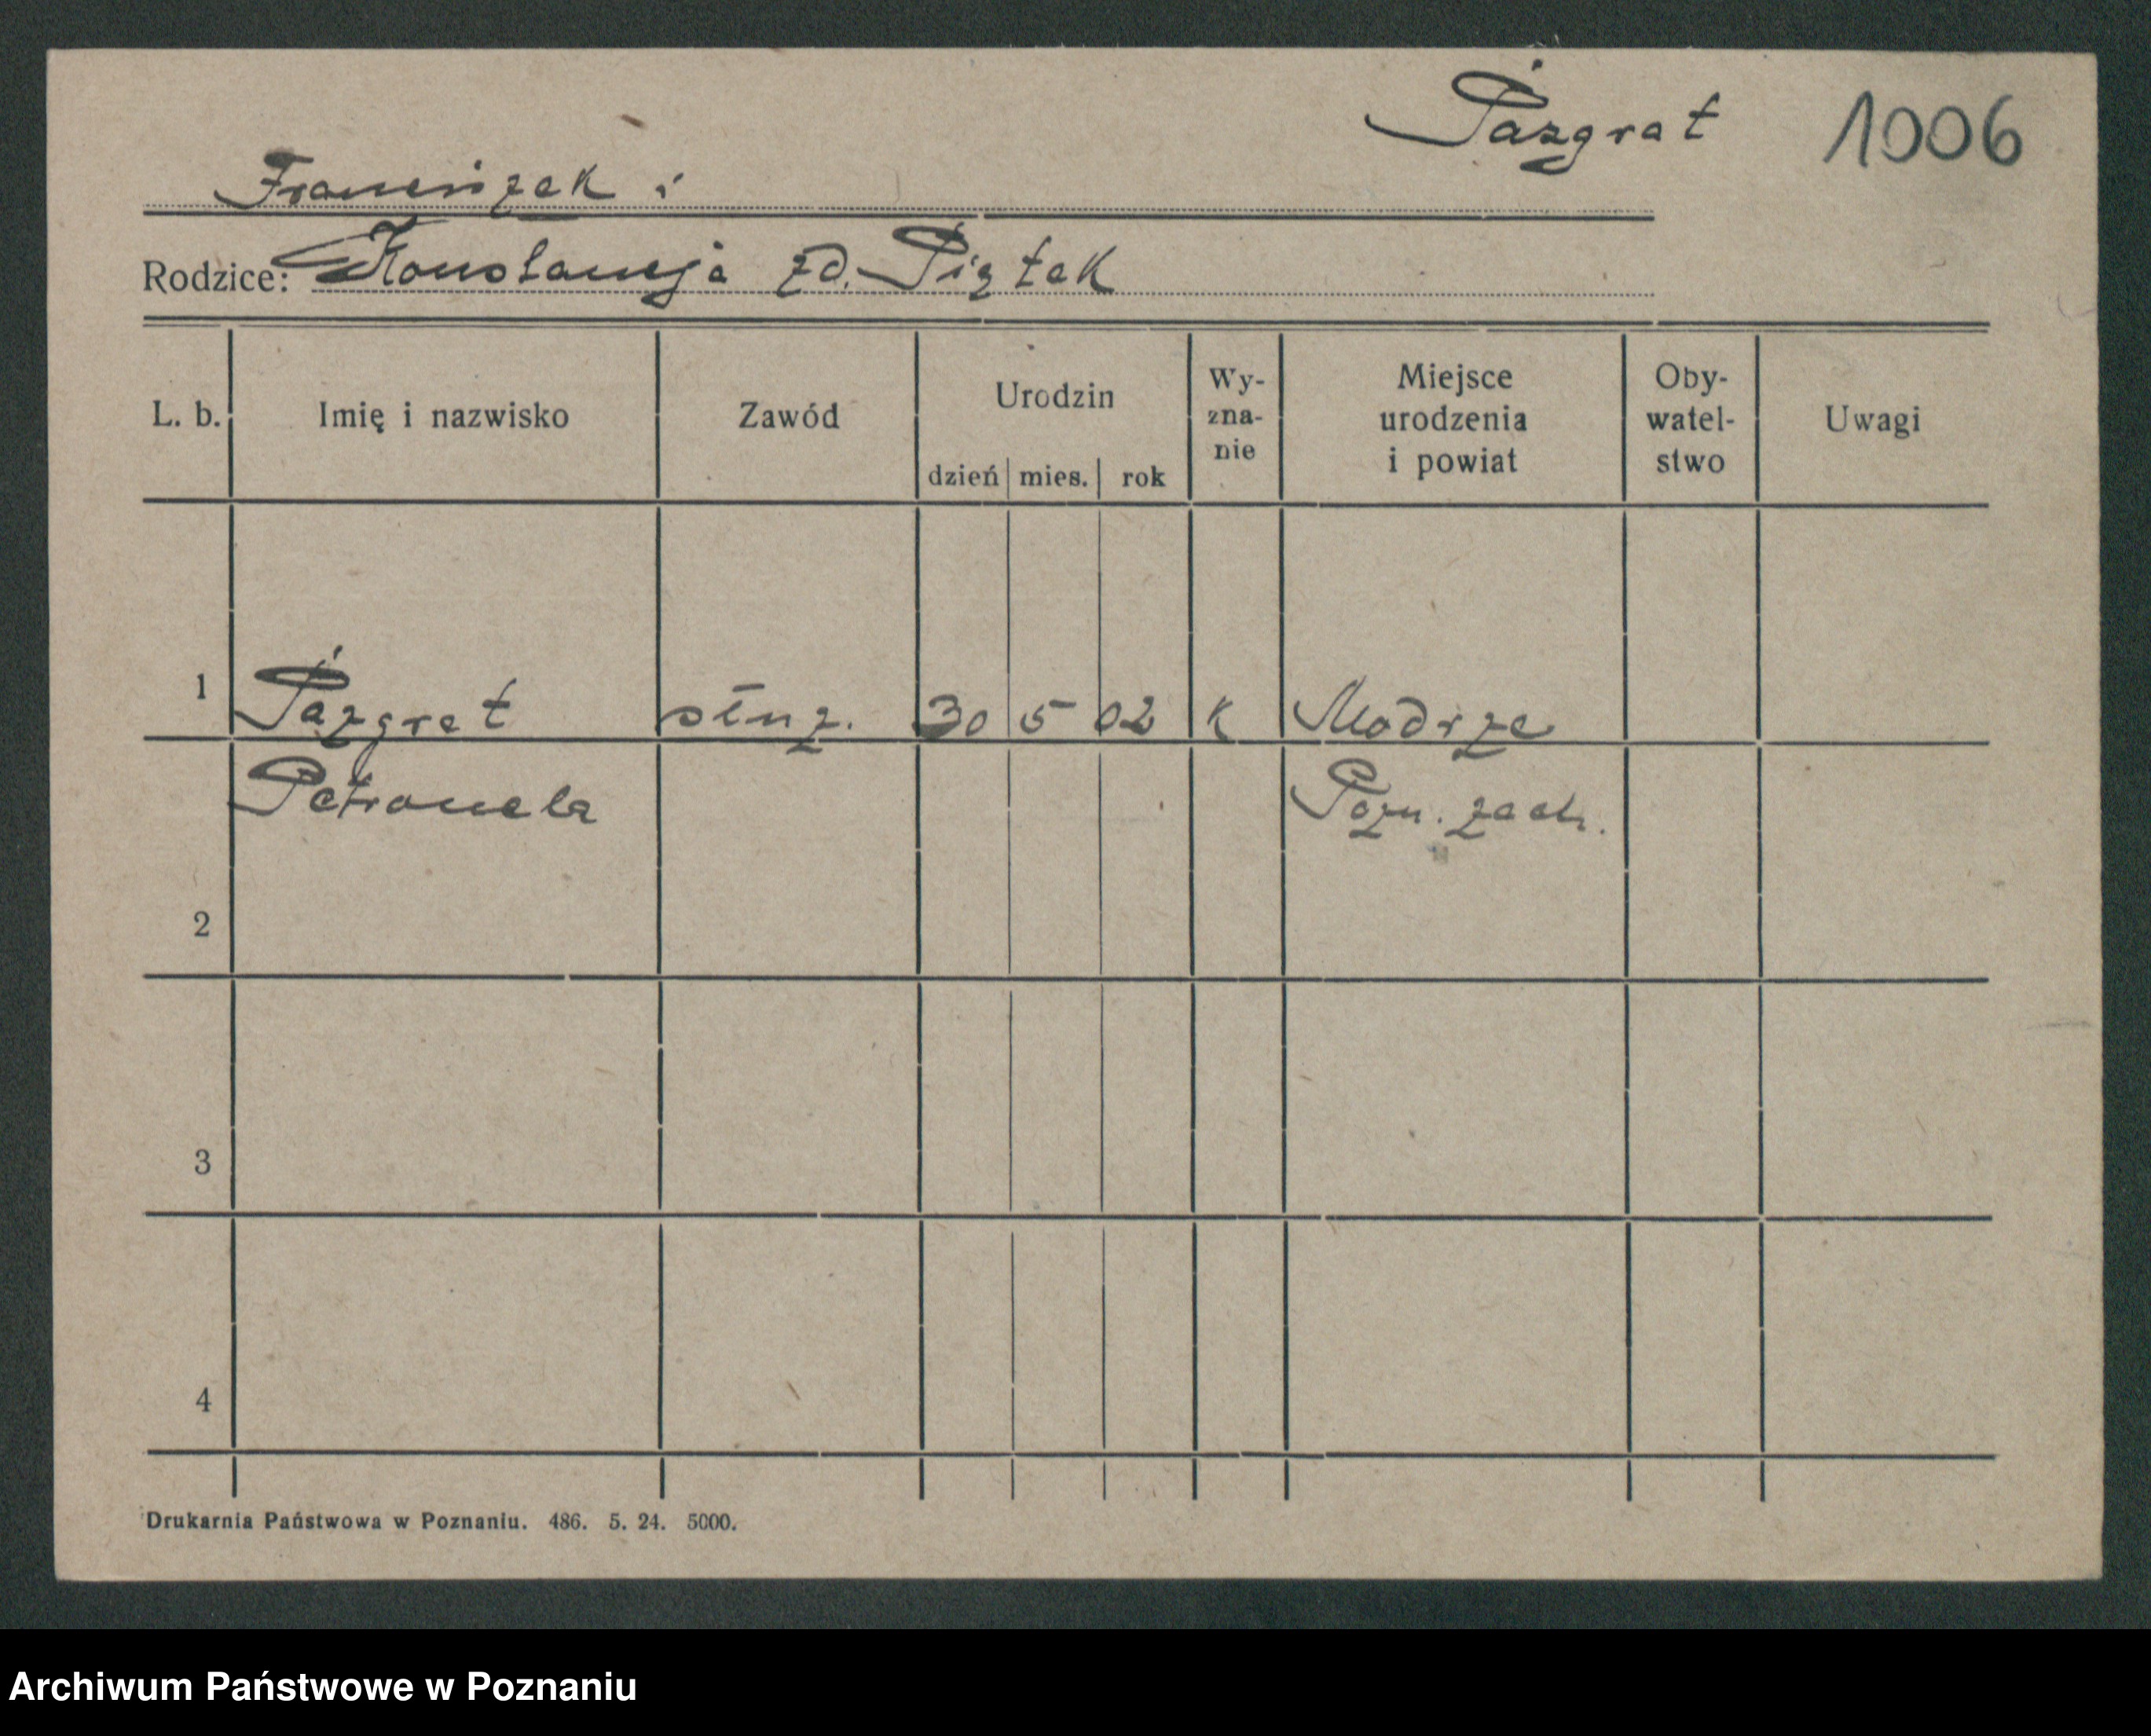 Pazgrat 1006
Franciszek i
Rodzice: Konstancja zd. Piątek
L. b. Imię i nazwisko Zawód Urodzin dzień mies. rok Wy-zna-nie Miejsce urodzenia i powiat Oby-watel-stwo Uwagi
1 Pazgrat służ. 30 5 02 k Modrze
Petronela Pozn. zach.
2
3
4
Drukarnia Państwowa w Poznaniu. 486. 5. 24. 5000.
Archiwum Państwowe w Poznaniu